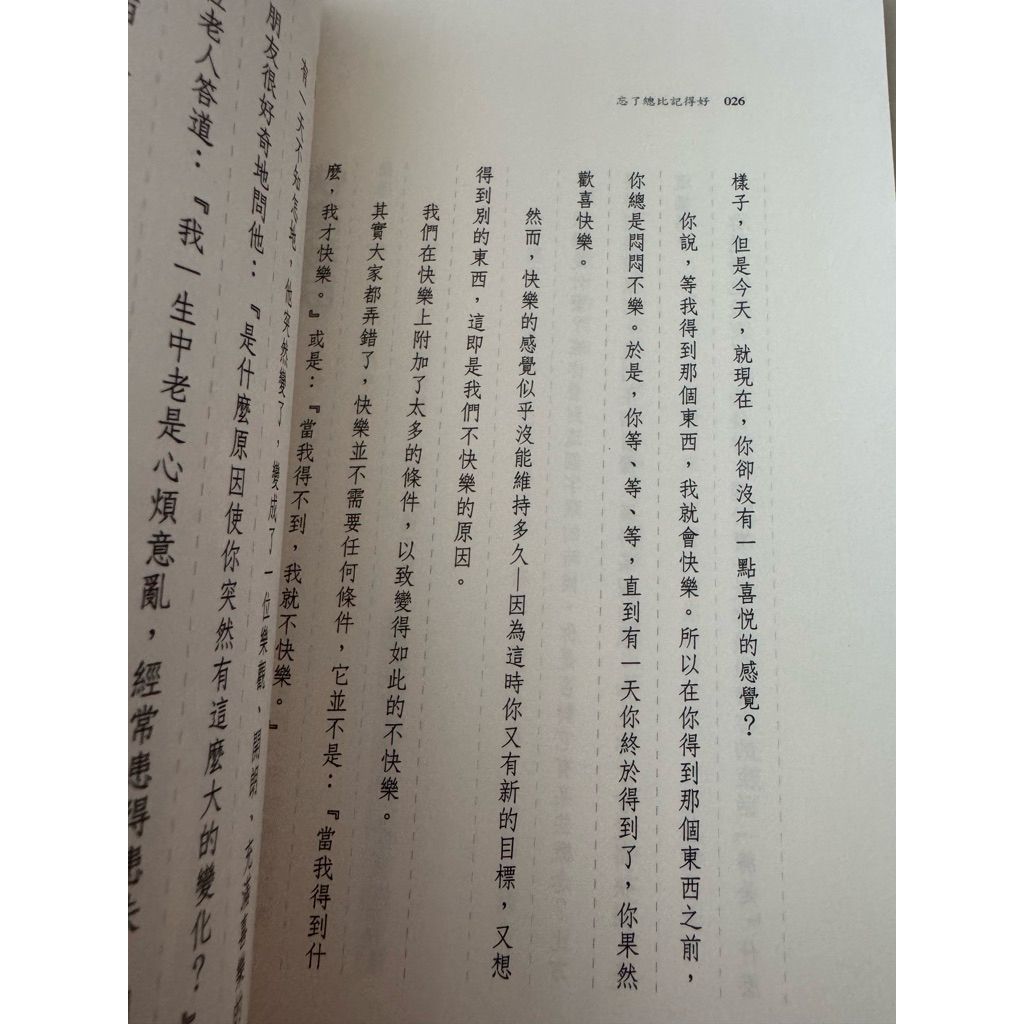 忘了總比記得好 026
樣子，但是今天，就現在，你卻沒有一點喜悅的感覺？
你說，等我得到那個東西，我就會快樂。所以在你得到那個東西之前，
你總是悶悶不樂。於是，你等、等、等，直到有一天你終於得到了，你果然
歡喜快樂。
然而，快樂的感覺似乎沒能維持多久—因為這時你又有新的目標，又想
得到別的東西，這即是我們不快樂的原因。
我們在快樂上附加了太多的條件，以致變得如此的不快樂。
其實大家都弄錯了，快樂並不需要任何條件，它並不是：『當我得到什
麼，我才快樂。』或是：『當我得不到，我就不快樂。』
有一天不知怎地，他突然變了，變成了一位樂觀、開朗、充滿喜樂的
朋友很好奇地問他：『是什麼原因使你突然有這麼大的變化？』
老人答道：『我一生中老是心煩意亂，經常患得患失